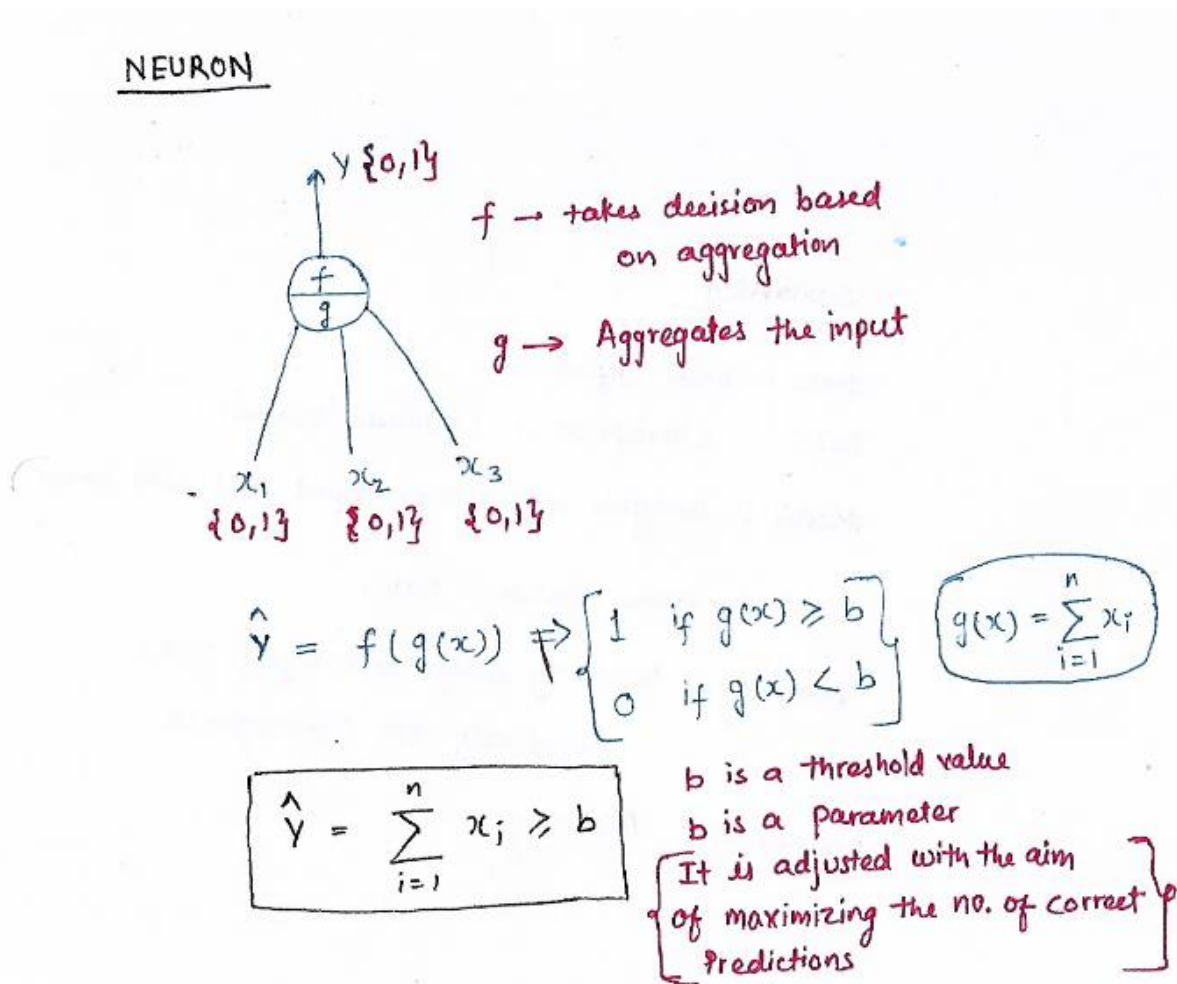 NEURON
y {0,1}
f → takes decision based
on aggregation
f
g
g → Aggregates the input
x₁ x₂ x₃
{0,1} {0,1} {0,1}
Ŷ = f(g(x)) ⇒ { 1 if g(x) ≥ b
0 if g(x) < b }
g(x) = ∑ᵢ₌₁ⁿ xᵢ
Ŷ = ∑ᵢ₌₁ⁿ xᵢ ≥ b
b is a threshold value
b is a parameter
{ It is adjusted with the aim
of maximizing the no. of correct
Predictions }